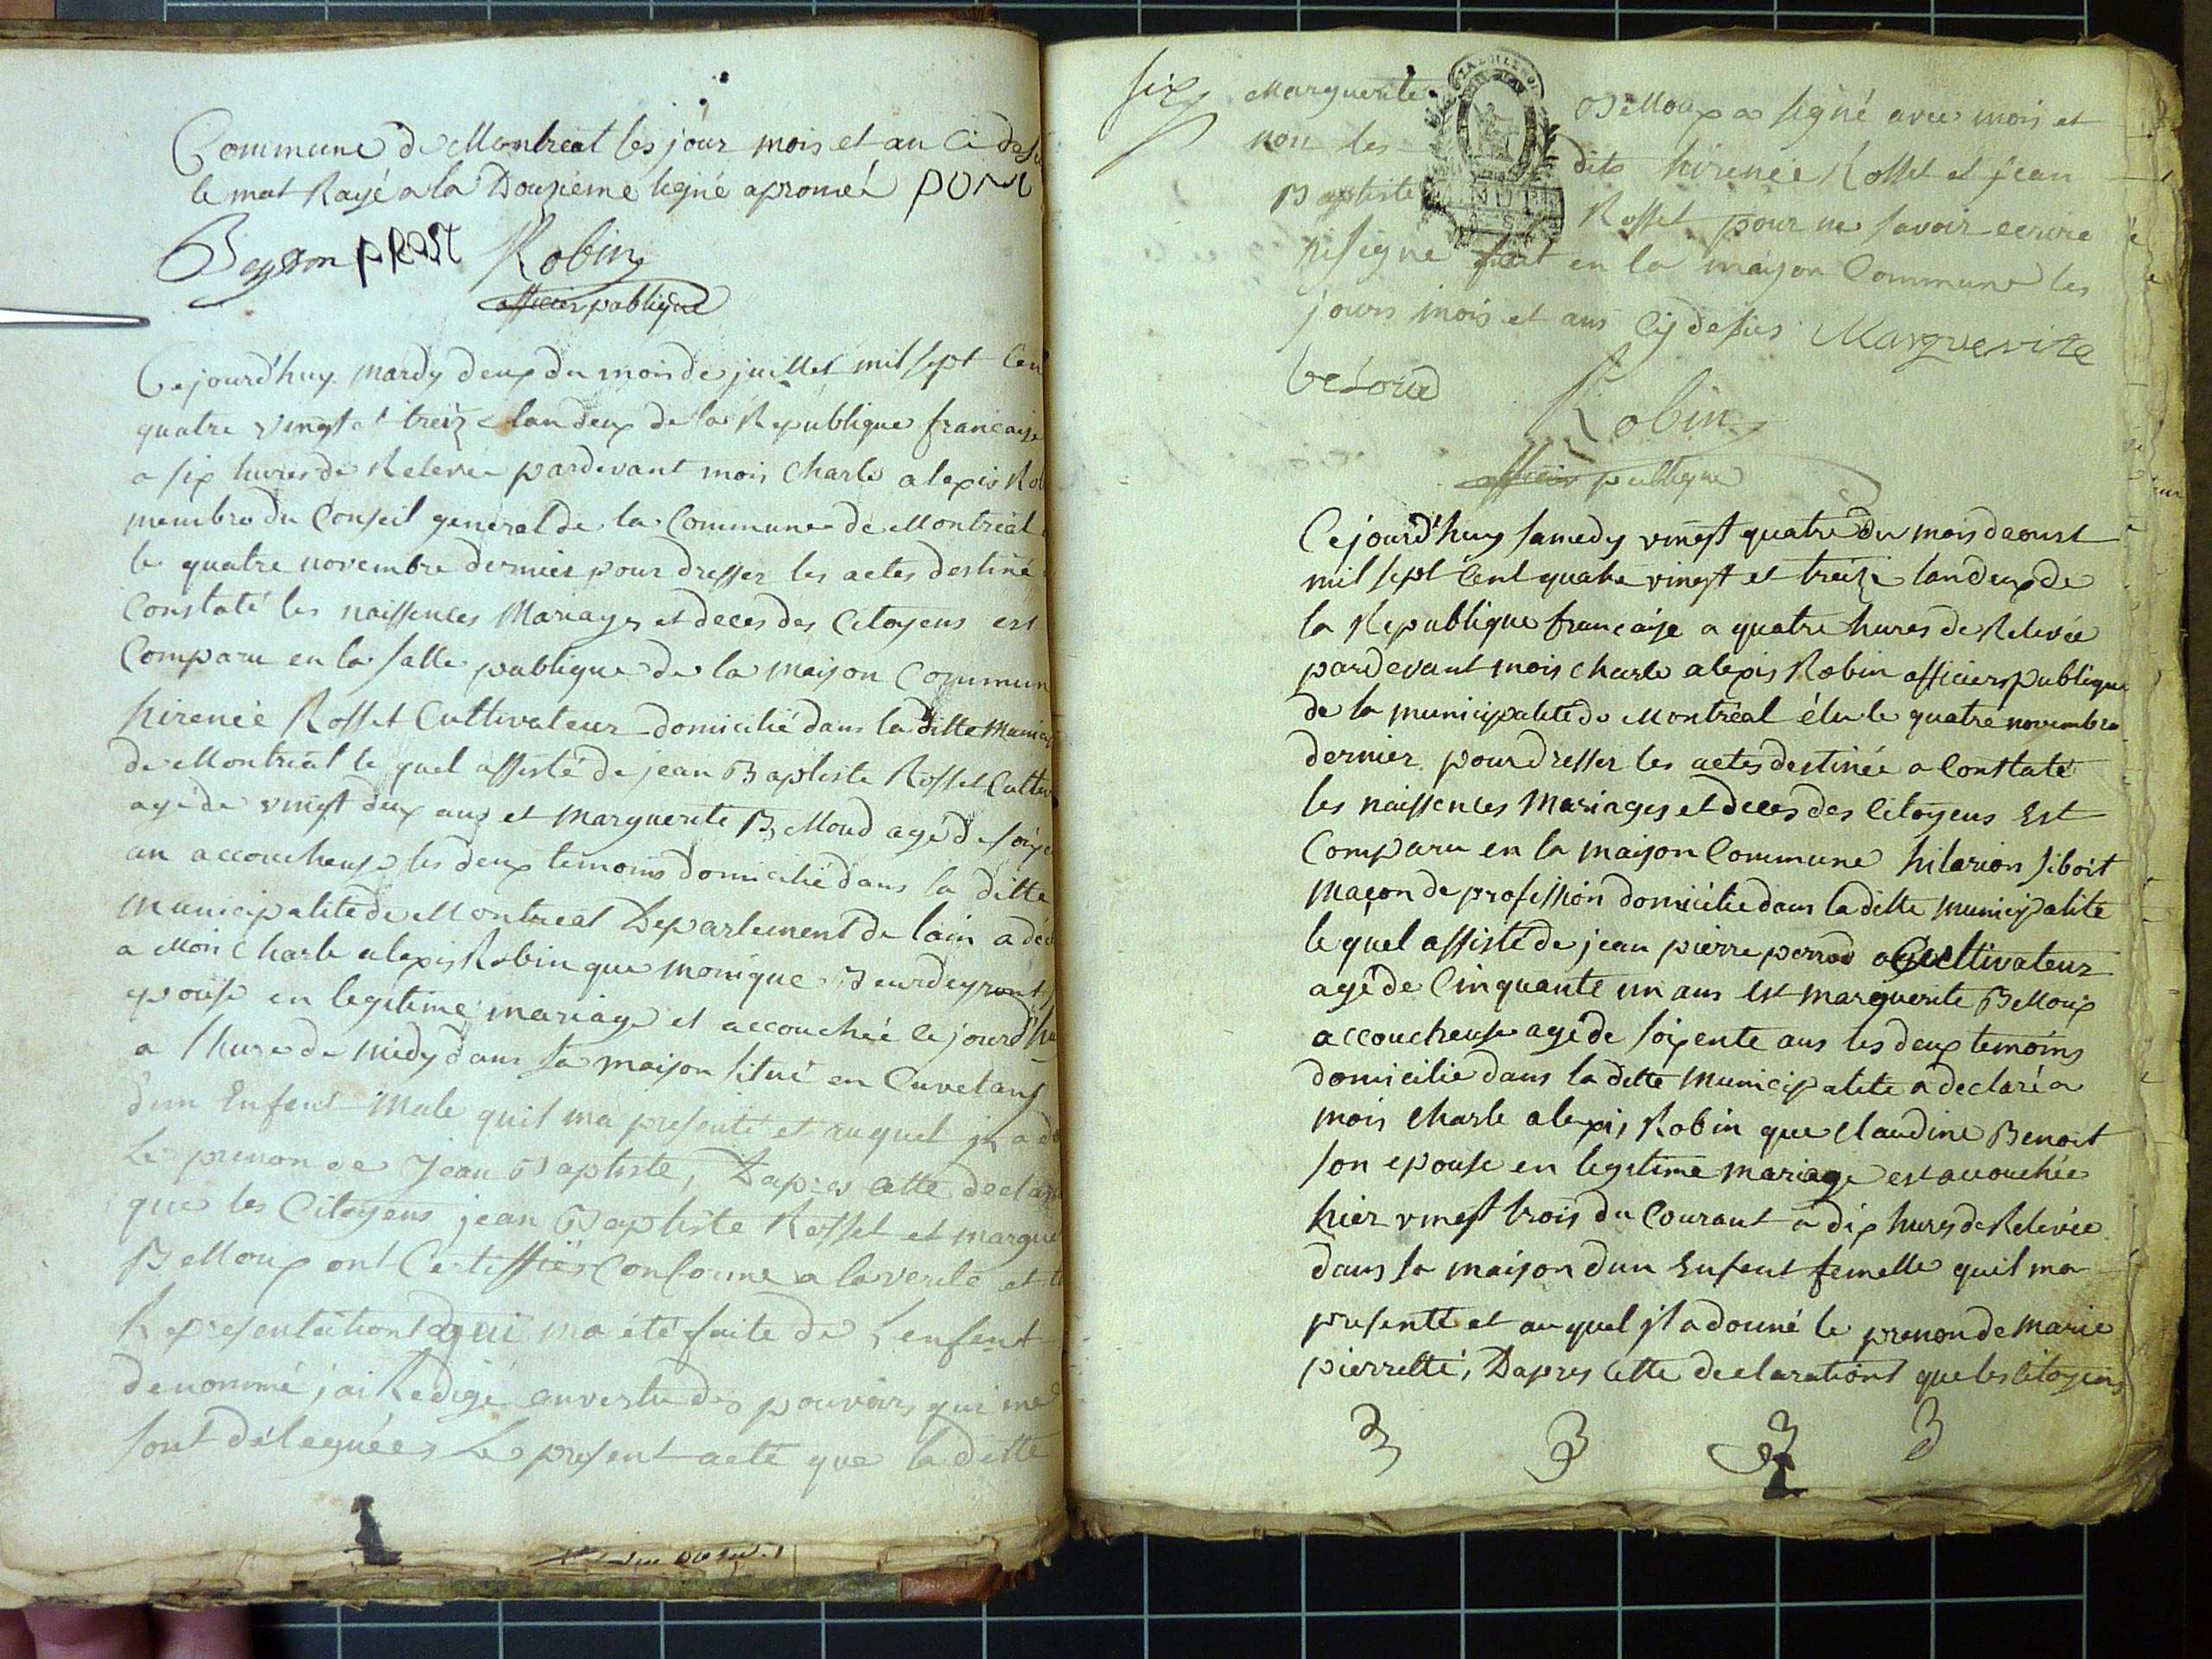 Commune de Montreal les jour mois et an Ci
le mot Rayé a la Douzieme ligne
Robin
officier publique
Cejourd'huy mardy deux du mois de juillet mil sept Cen
quatre vingt et treize lan deux de la Republique francaise
a six hures de Relevee pardevant mois Charle alexis Rob
membre du Conseil general de la Commune de Montreal
le quatre novembre dernier pour dresser les actes destiné
Constaté les naissences Mariages et deces des Citoyens est
Comparu en la salle publique de la maison Commun
hirenée Rosset Cultivateur domicilié dans la ditte Munici
de Montreal le quel assisté de jean Baptiste Rosset Cultiv
agé de vingt deux ans et marguerite agé de
an accoucheuse les deux temoins domicilié dans la ditte
municipalité de Montreal Departement de lain a déc
a Moi Charle alexis Robin que monique
epouse en legitime mariage et accouchée cejourd'hu
a lhure de midy dans sa maison situé en
dun Enfent Male quil ma presenté et auquel jl a do
Le prenon de Jean Baptiste, Dapres cette declara
que les Citoyens jean Baptiste Rosset et margue
Belloux ont Certiffiés Conforme a la verité et l
Representationt qui ma été faite de Lenfent
denommé jai Redigé en vertu des pouvoirs qui me
sont déleguées Le present acte que la ditte
six
Marguerite Belloux a signé avec mois et
non les dits hirenée Rosset et jean
Baptiste Rosset pour ne savoir ecrire
ni signe fait en la maison Commune les
jours mois et ans Cy desus Marguerite
Robin
officier publique
Cejourd'huy samedy vingt quatre du mois de oust
mil sept Cent quatre vingt et treize lan deux de
la Republique francaise a quatre hures de Relevée
pardevant mois Charle alexis Robin officier publique
de la municipalité de Montréal élu le quatre novembre
dernier pour dresser les actes destinée a Constaté
les naissences Mariages et deces des Citoyens Est
Comparu en la maison Commune hilarion siboit
maçon de profession domicilié dans la ditte municipalité
le quel assisté de jean pierre perrod Cultivateur
agé de Cinquante un ans est marguerite Belloux
accoucheuse agé de soixente ans les deux temoins
domicilie dans la ditte municipalite a declaré a
mois Charle alexis Robin que Claudine Benoit
son epouse en legitime mariage est accouchée
hier vingt trois du Courant a dix hures de Relevée
dans sa maison dun Enfent femelle quil ma
presenté et au quel jl a donné le prenon de marie
pierrette, Dapres Cette declarationt que les Citoyens